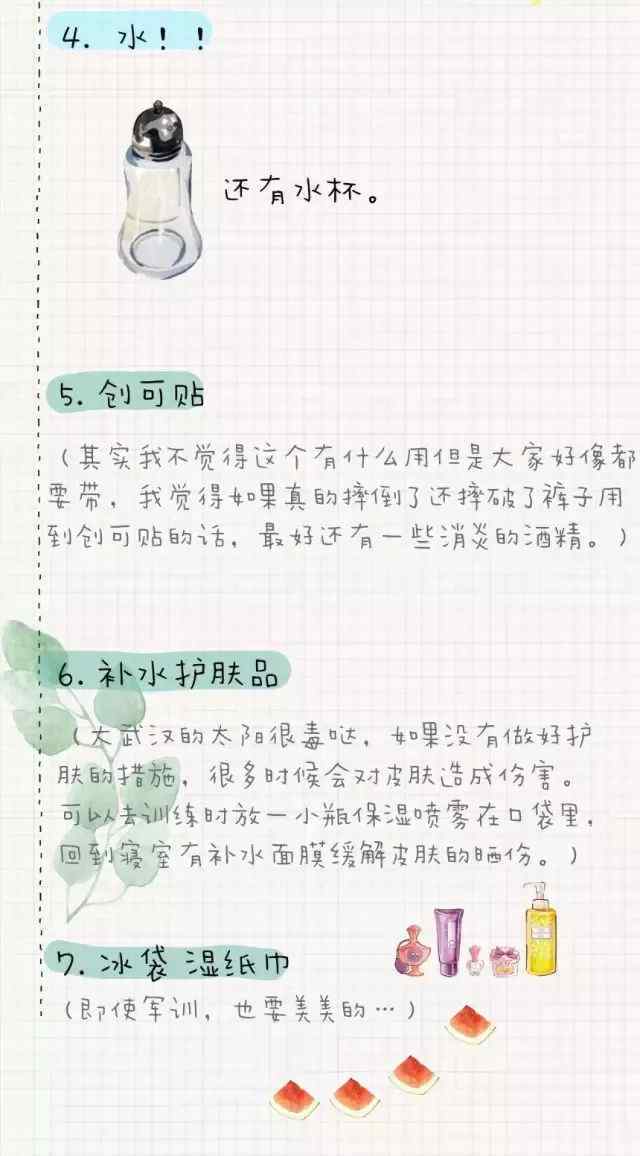 4. 水！！
还有水杯。
5. 创可贴
（其实我不觉得这个有什么用但是大家好像都
要带，我觉得如果真的摔倒了还摔破了裤子用
到创可贴的话，最好还有一些消炎的酒精。）
6. 补水护肤品
（大武汉的太阳很毒哒，如果没有做好护
肤的措施，很多时候会对皮肤造成伤害。
可以去训练时放一小瓶保湿喷雾在口袋里，
回到寝室有补水面膜缓解皮肤的晒伤。）
7. 冰袋 湿纸巾
（即使军训，也要美美的…）